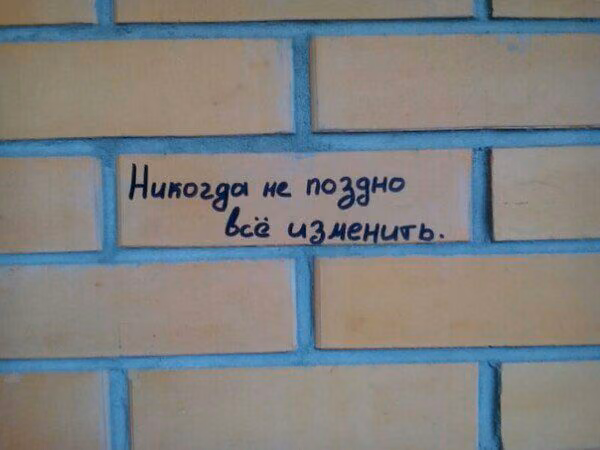 Никогда не поздно
всё изменить.